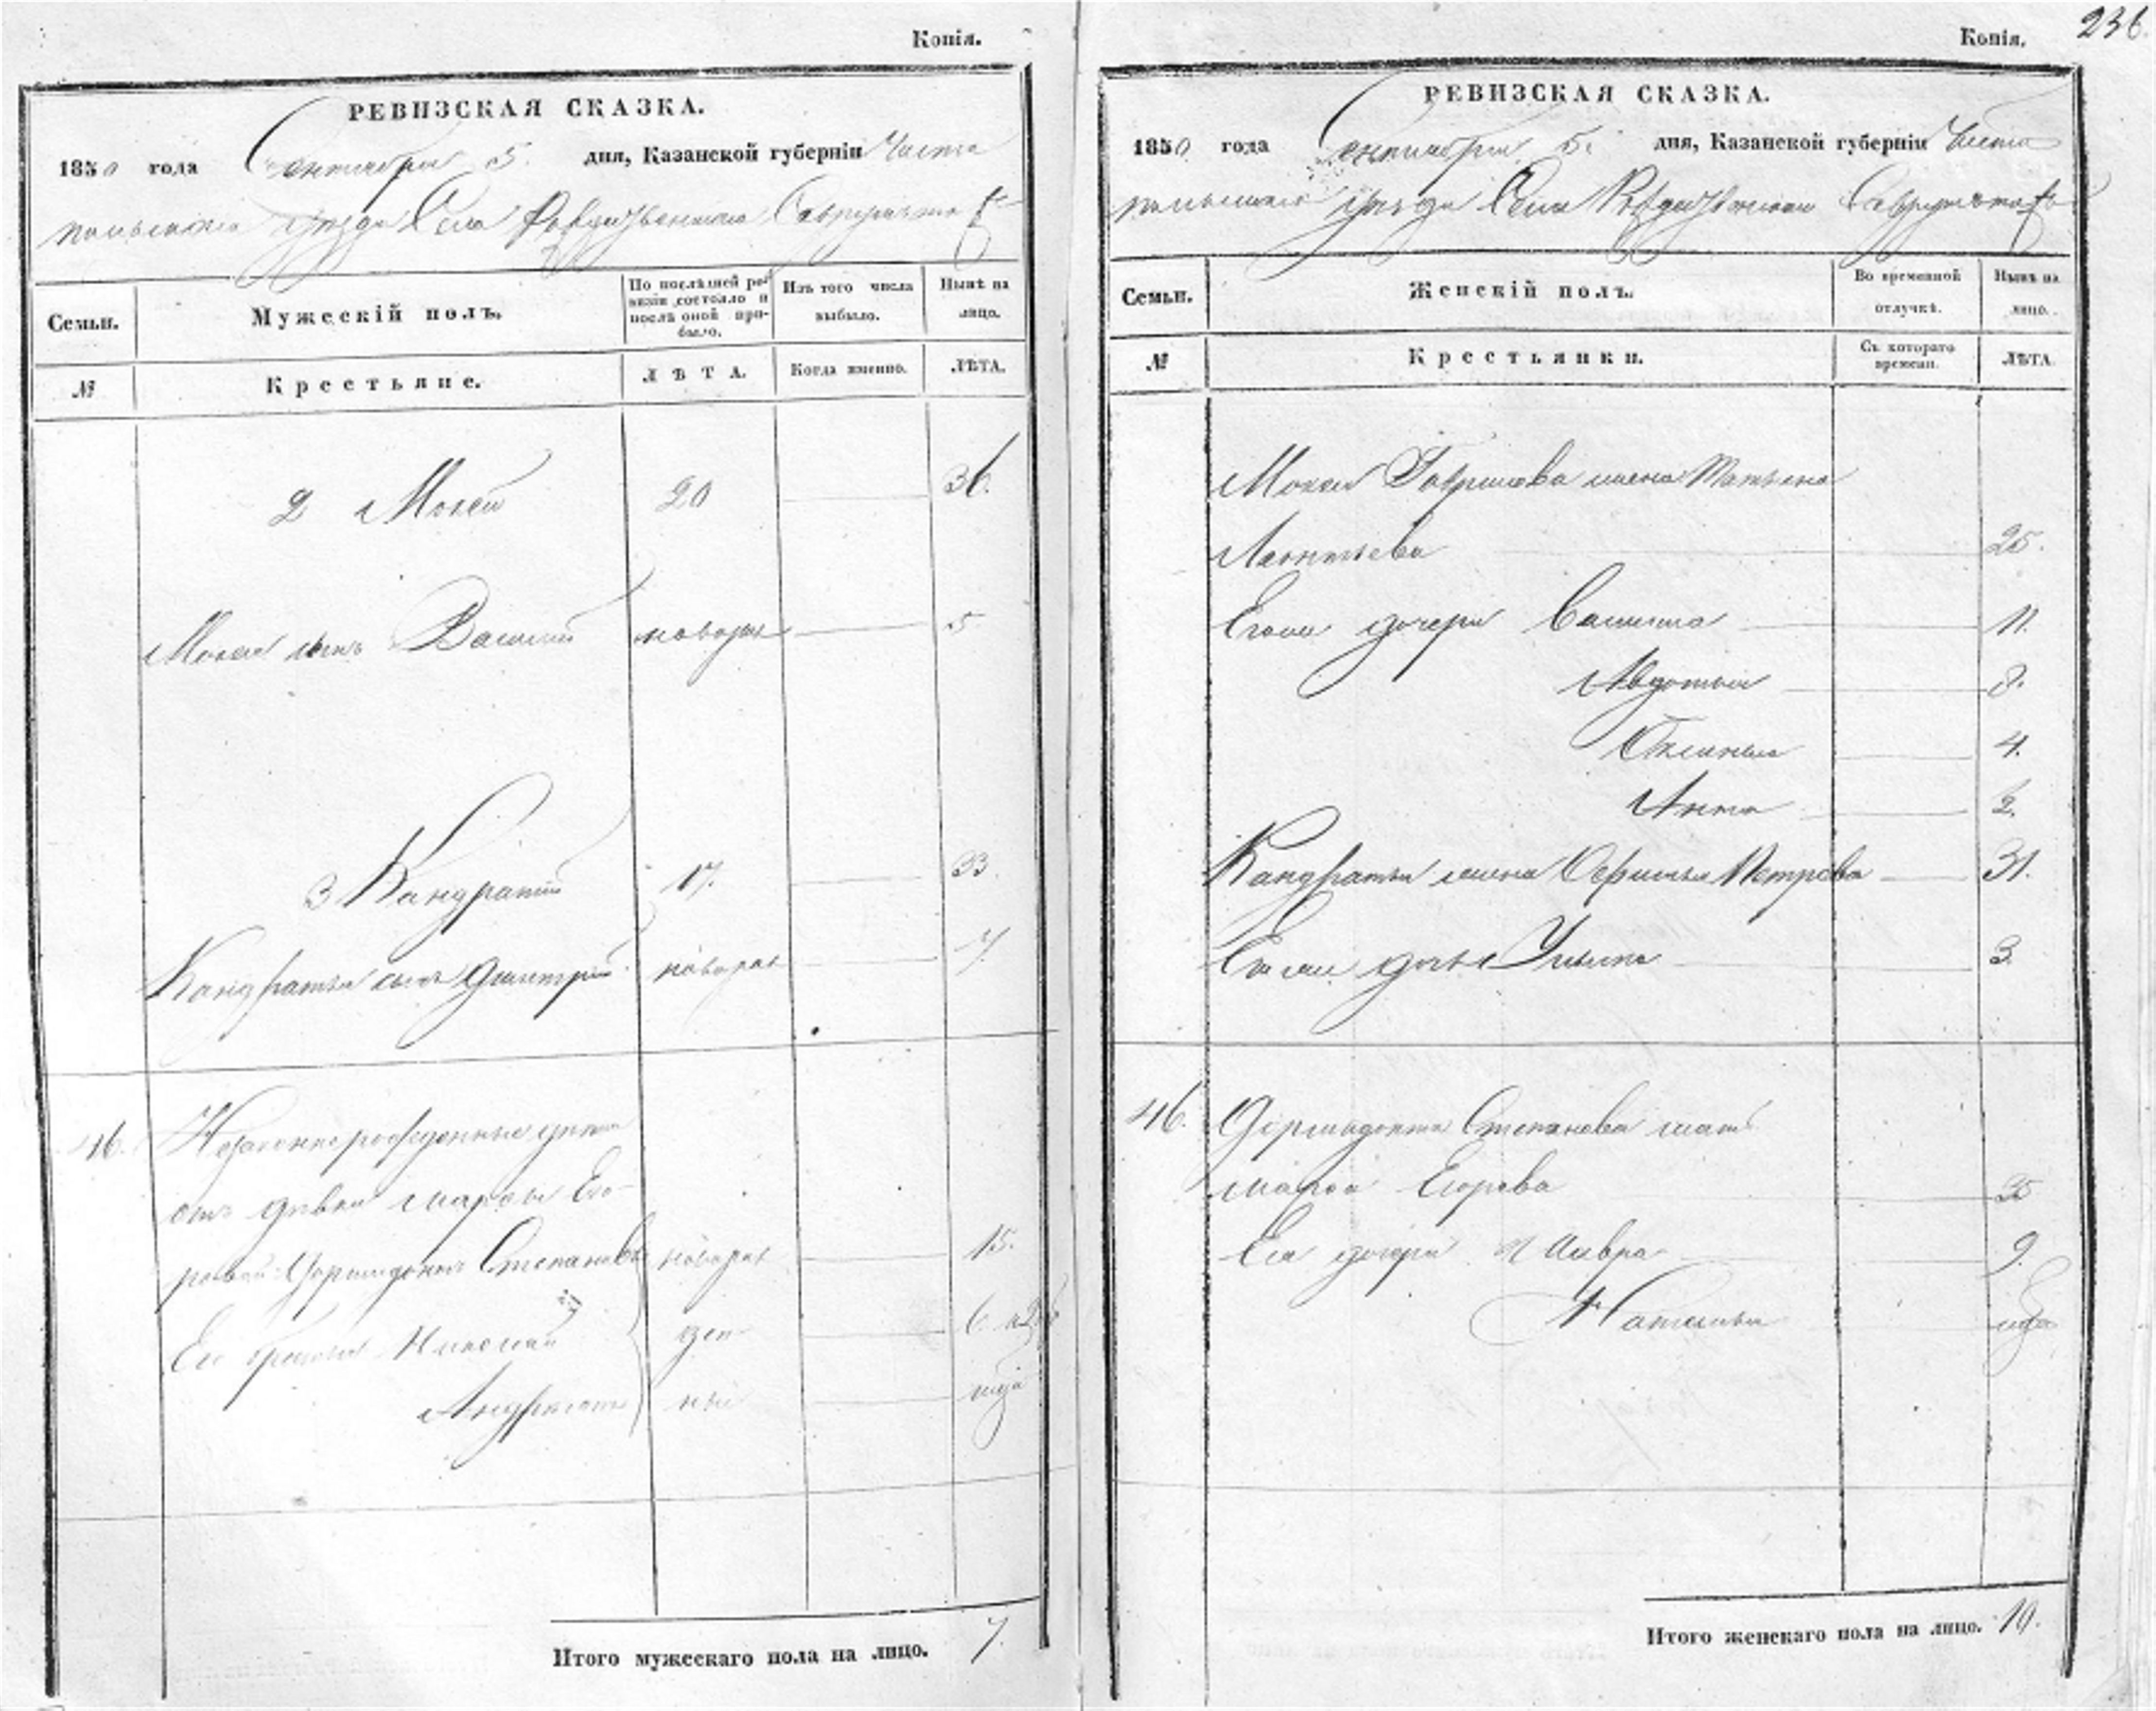 Копія.
РЕВИЗСКАЯ СКАЗКА.
1850 года Сентября 5. дня, Казанской губерніи Чисто
польскаго уѣзда Села Рождественскаго
Семьи.
Мужескій полъ.
По послѣдней ре-
визіи состояло и
послѣ оной при-
было.
Изъ того числа
выбыло.
Нынѣ на
лицо.
№
Крестьяне.
ЛѢТА.
Когда именно.
ЛѢТА.
2 Мокей 20 36.
Мокея сынъ Василий новорж 5
3 Кандратий 17. 33.
Кандратья сынъ Димитрий новорж 7
46. Незаконнорожденные дети
отъ девки Марфы Его-
ровой Дормидонтъ Степановъ новорж 15.
Его братья Николай ден 6
ные
Итого мужескаго пола на лицо. 7.
236.
Копія.
РЕВИЗСКАЯ СКАЗКА.
1850 года Сентября 5. дня, Казанской губерніи Чисто
польскаго уѣзда Села Рождественскаго
Семьи.
Женскій полъ.
Во временной
отлучкѣ.
Нынѣ на
лицо.
№
Крестьянки.
Съ котораго
времени.
ЛѢТА.
Мокея Гаврилова жена Татьяна
Леонтьева 25.
Его дочери 11.
Авдотья 8.
4.
Анна 2.
Кандратья жена Петрова 31.
Его дочь Ульяна 3.
46. Дормидонта Степанова мать
Марфа Егорова 35
Ея дочери 9.
Наталья
Итого женскаго пола на лицо. 10.